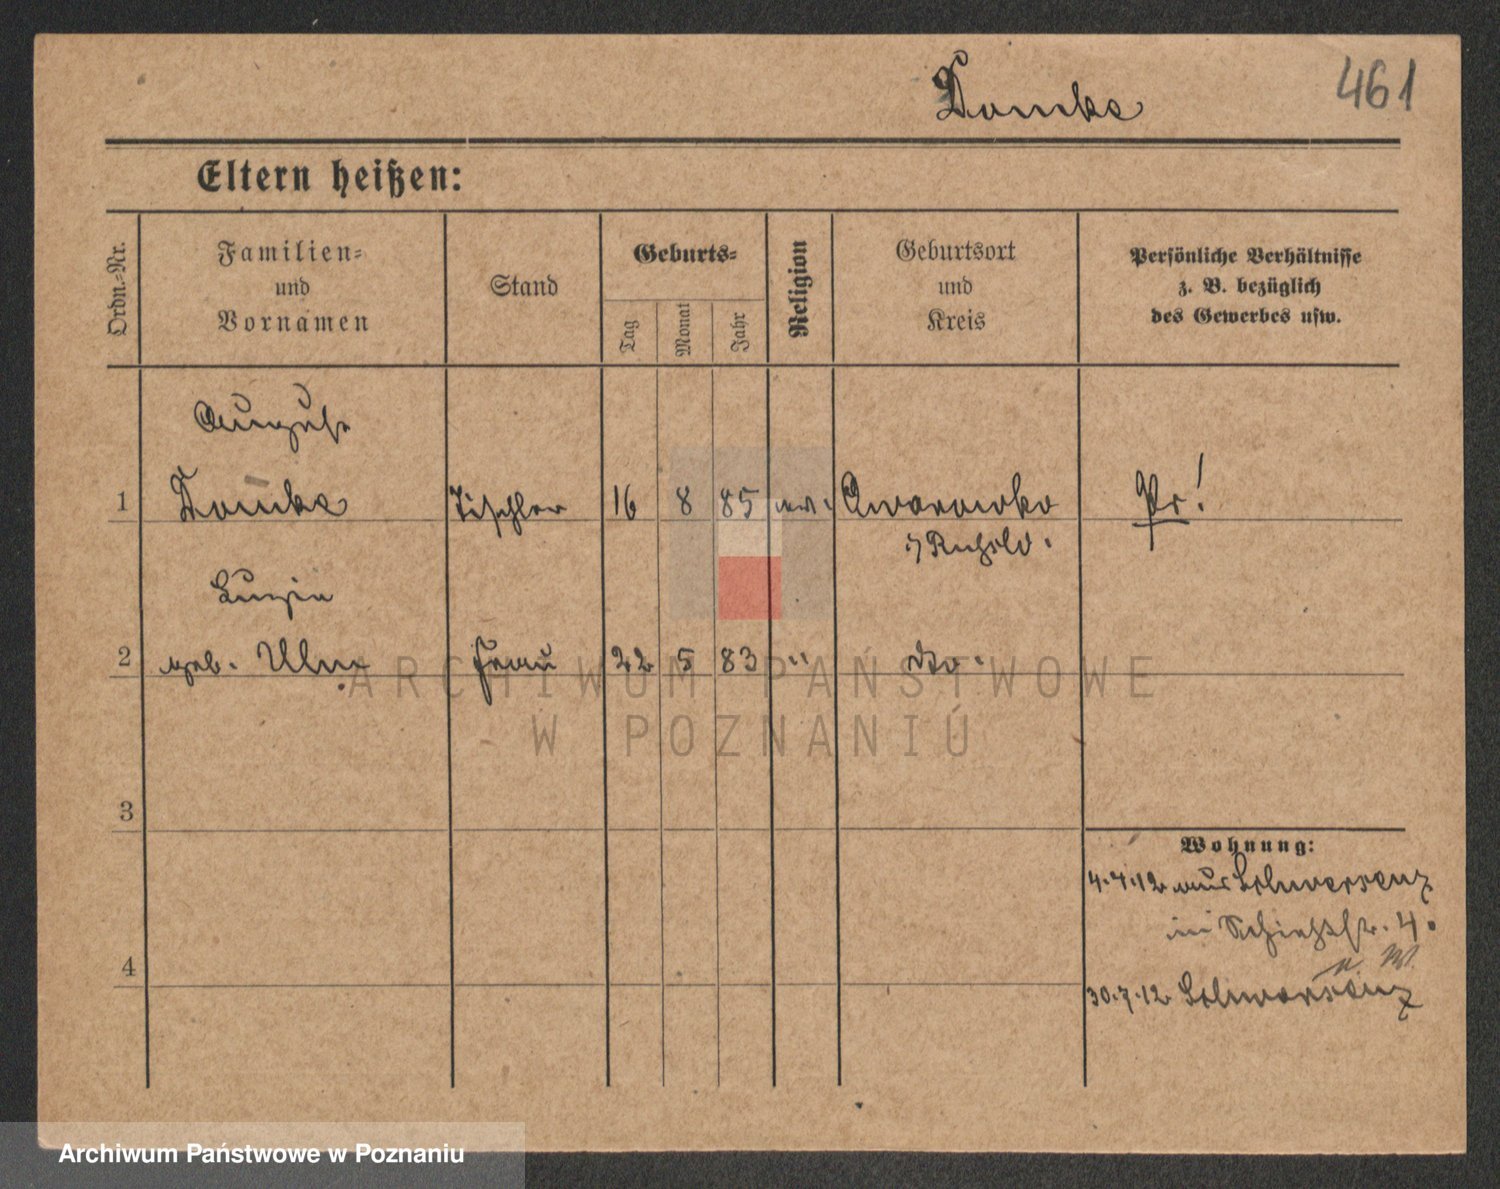 Domke
461
Eltern heißen:
Ordn.-Nr.
Familien-
und
Vornamen
Stand
Geburts-
Tag
Monat
Jahr
Religion
Geburtsort
und
Kreis
Persönliche Verhältnisse
z. B. bezüglich
des Gewerbes usw.
August
1 Domke Tischler 16 8 85 ev. Pr!
2 geb. Frau 22 5 83 " dto.
3
Wohnung:
4.7.12 aus Schwersenz
in Schießstr. 4.
4
30.7.12 Schwersenz
ARCHIWUM PAŃSTWOWE
W POZNANIU
Archiwum Państwowe w Poznaniu